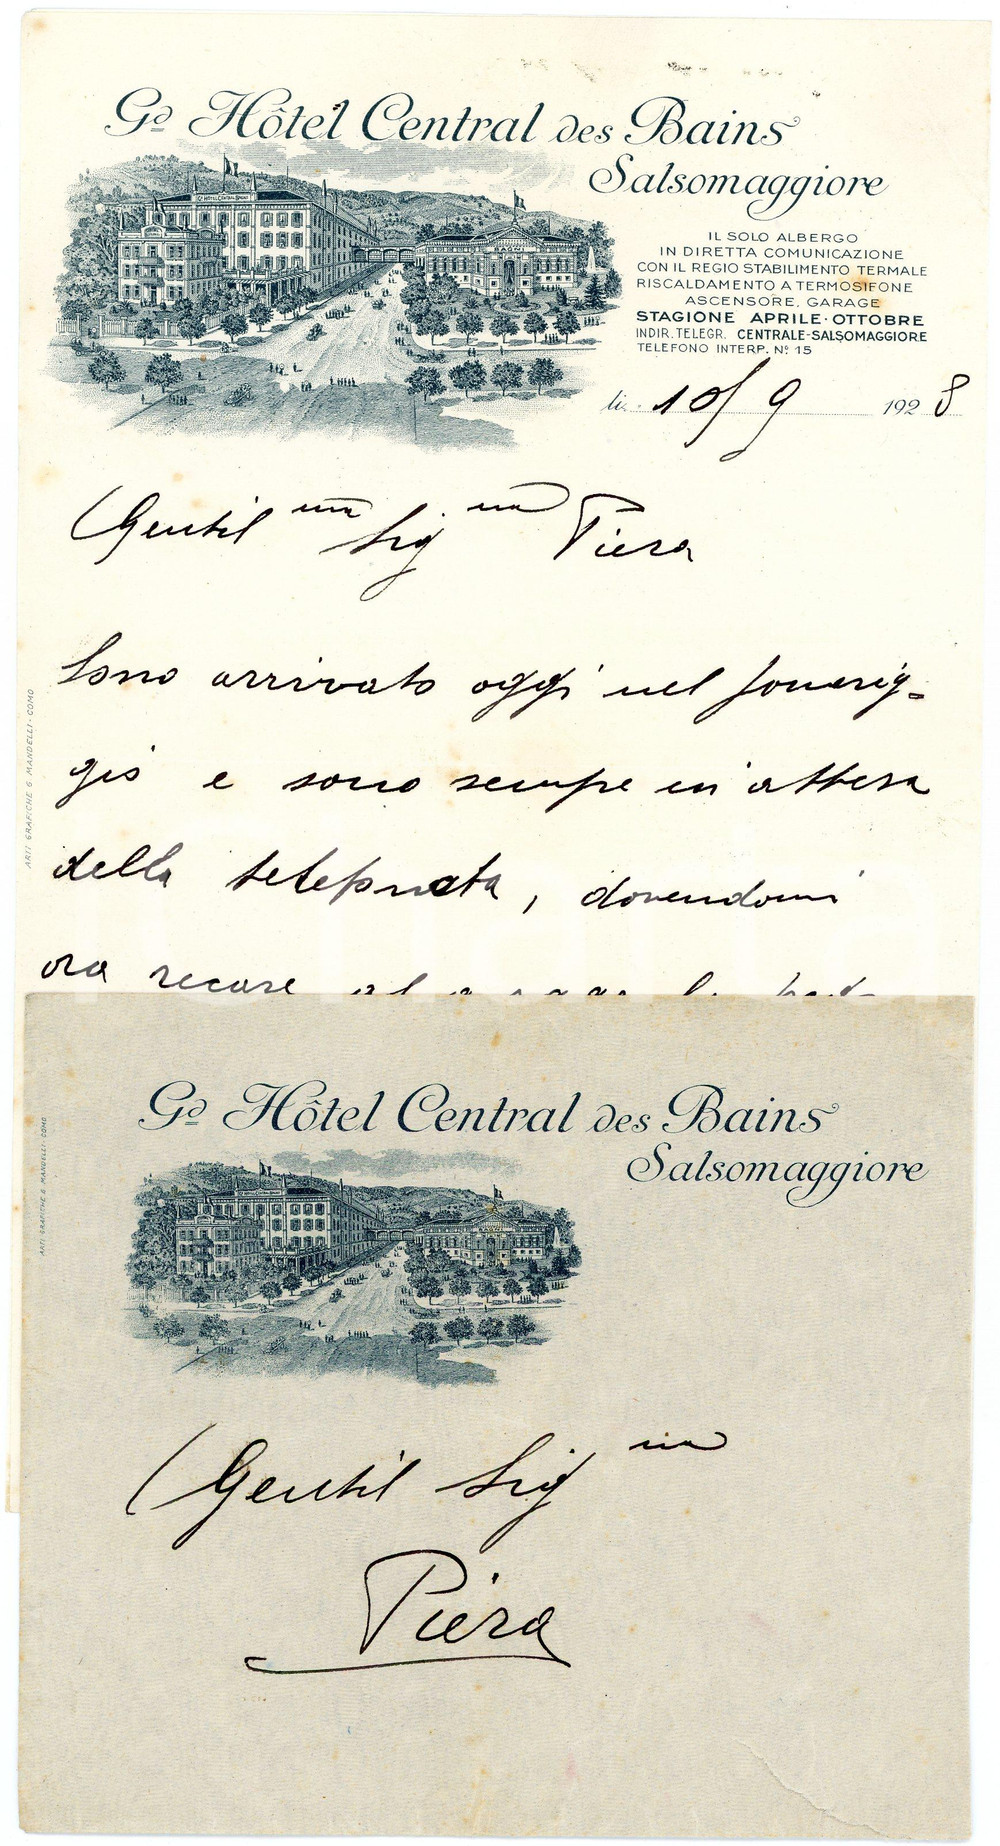 Gd Hôtel Central des Bains
Salsomaggiore
Gd HOTEL CENTRAL BAGNI
BAGNI
IL SOLO ALBERGO
IN DIRETTA COMUNICAZIONE
CON IL REGIO STABILIMENTO TERMALE
RISCALDAMENTO A TERMOSIFONE
ASCENSORE. GARAGE
STAGIONE APRILE-OTTOBRE
INDIR. TELEGR. CENTRALE-SALSOMAGGIORE
TELEFONO INTERP. No 15
li 10/9 1928
Gentilma Signa Piera
Sono arrivato oggi nel pomerig=
gio e sono sempre in attesa
della telefonata, dovendomi
ora recare al
ARTI GRAFICHE G. MANDELLI - COMO
Gd Hôtel Central des Bains
Salsomaggiore
BAGNI
ARTI GRAFICHE G. MANDELLI - COMO
Gentil Signa
Piera